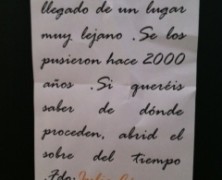 llegado de un lugar
muy lejano .Se los
pusieron hace 2000
años .Si queréis
saber de dónde
proceden, abrid el
sobre del tiempo
.Fdo: